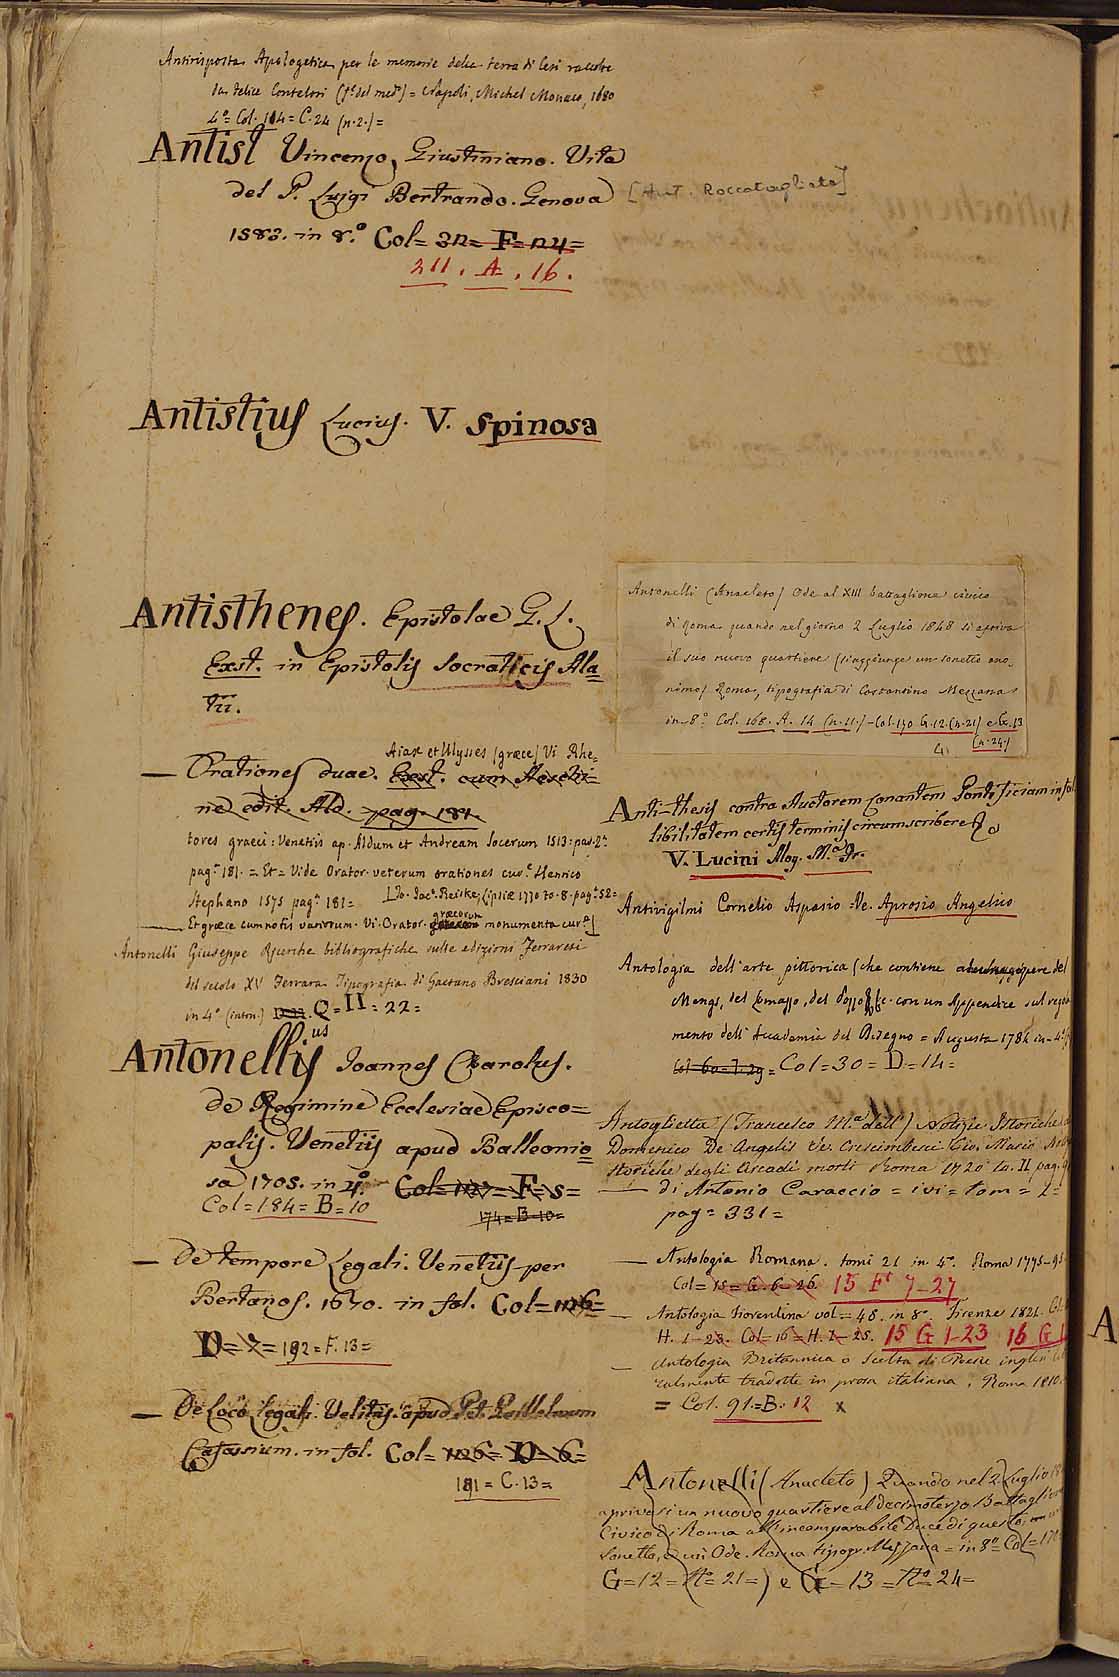 Antirisposta Apologetica per le memorie della terra di Cesi raccolte
da Felice Contelori (f.e del med.o) = Napoli, Michel Monaco, 1680
4.o = Col. 104 = C. 24 (n. 2.) =
Antist Vincenzo, Giustiniano. Vita
del P. Luigi Bertrando. Genova
[Ant. Roccatagliata]
1583. in 8.o Col = 32 = F = 24 =
211. A. 16.
Antistius Lucius. V. Spinosa
Antisthenes. Epistolae G. L.
Exst. in Epistolis Socraticis Ala=
tii.
Aiax et Ulysses (græce) Vi. Rhe=
— Orationes duae. Exst. cum Aeschi=
ne edit. Ald. pag. 181.
tores graeci: Venetiis ap. Aldum et Andream Socerum 1513: par. 2.a
pag.a 181. = Et = Vide Orator. veterum orationes cur.e Henrico
Stephano 1575 pag.a 181 =
Io. Jac.o Reiske, Lipsiæ 1770 to. 8. pag.a 52 =
— Et græce cum notis variorum. Vi. Orator. græcorum monumenta cur.e
Antonelli Giuseppe Ricerche bibliografiche sulle edizioni Ferraresi
del secolo XV Ferrara Tipografia di Gaetano Bresciani 1830
in 4.o (inton.) Q = II = 22 =
Antonellius Joannes Carolus.
de Regimine Ecclesiae Episco=
palis. Venetiis apud Balleonio
sa 1705. in 4.o Col = 127 = F = 5 =
Col = 184 = B = 10
174 = B = 10 =
— De tempore Legali. Venetiis per
Bertanos. 1670. in fol. Col = 126 =
D = 7 = 192 = F. 13 =
— De Loco Legali. Velitris apud
Cafassium. in fol. Col = 126 = D = 6 =
181 = C. 13 =
Antonelli (Anacleto) Ode al XIII battaglione civico
di Roma quando nel giorno 2 Luglio 1848 si apriva
il suo nuovo quartiere (si aggiunge un sonetto ano=
nimo) Roma, tipografia di Costantino Mezzana
in 8.o Col. 168. A. 14 (n. 11.) - Col. 170 G. 12. (n. 21) e G. 13
(n. 24.)
Anti-thesis contra Auctorem conantem Pontificiam infal
libilitatem certis terminis circumscribere
V. Lucini Aloy. M.a Fr.
Antivigilmi Cornelio Aspasio = Ve. Aprosio Angelico
Antologia dell'arte pittorica (che contiene opere del
Mengs, del Lomazzo, del Pozzo &c. con un Appendice sul rego
mento dell'Accademia del Disegno = Augusta 1784 in-4.o
Col = 60 = F. 29 = Col = 30 = D = 14 =
Antoglietta (Francesco M.a dell') Notizie Istoriche
Domenico De Angelis Ve. Crescimbeni Gio. Mario
storiche degli Arcadi morti Roma 1720 to. II, pag.
— di Antonio Caraccio = ivi = tom = 1 =
pag.a 331 =
— Antologia Romana. tomi 21 in 4.o Roma 1775-95
Col = 15 = G. 6 - 26. 15 F 7-27
— Antologia Fiorentina vol = 48. in 8.o Firenze 1821.
H. 1 - 23. Col = 16 = H. 1 - 25. 15 G 1-23 16 G 1
— Antologia Britannica o Scelta di Poesie inglesi
ralmente tradotte in prosa italiana. Roma 1810.
= Col. 91. = B. 12 x
Antonelli (Anacleto) Quando nel 2 Luglio
aprivasi un nuovo quartiere al decimoterzo Battaglione
Civico di Roma all'incomparabile Duce di questo,
Sonetto, e un Ode. Roma tipogr. Mezzana = in 8.o = Col = 170
G = 12 = (N.o = 21 =) e G = 13 = N.o 24 =